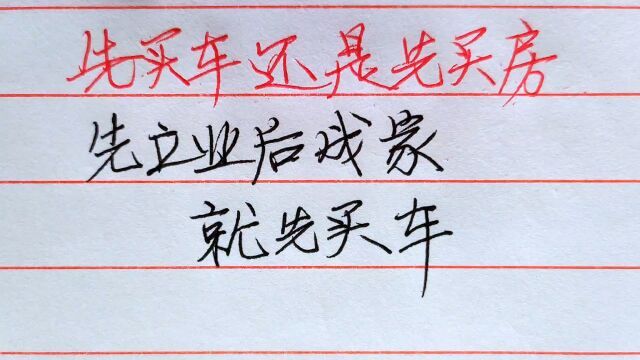 先买车还是先买房
先立业后成家
就先买车